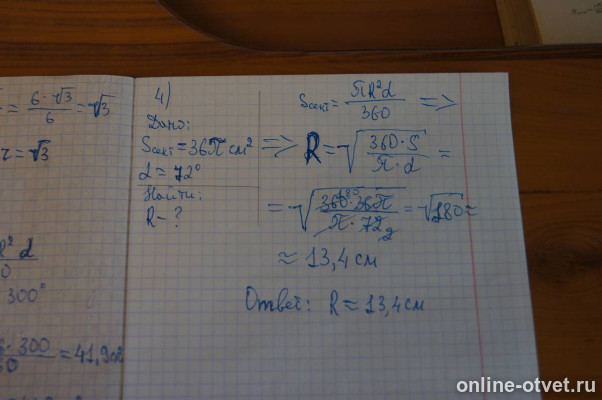 6·√3/6 = √3
r = √3
300°
300
= 41,9
4)
Дано:
Sсект = 36π см²
α = 72°
Найти:
R - ?
Sсект = πR²α/360 =>
=> R = √(360·S/(π·α)) =
= √(360·36π/(π·72)) = √180 ≈
180
2
≈ 13,4 см
Ответ: R ≈ 13,4 см
online-otvet.ru